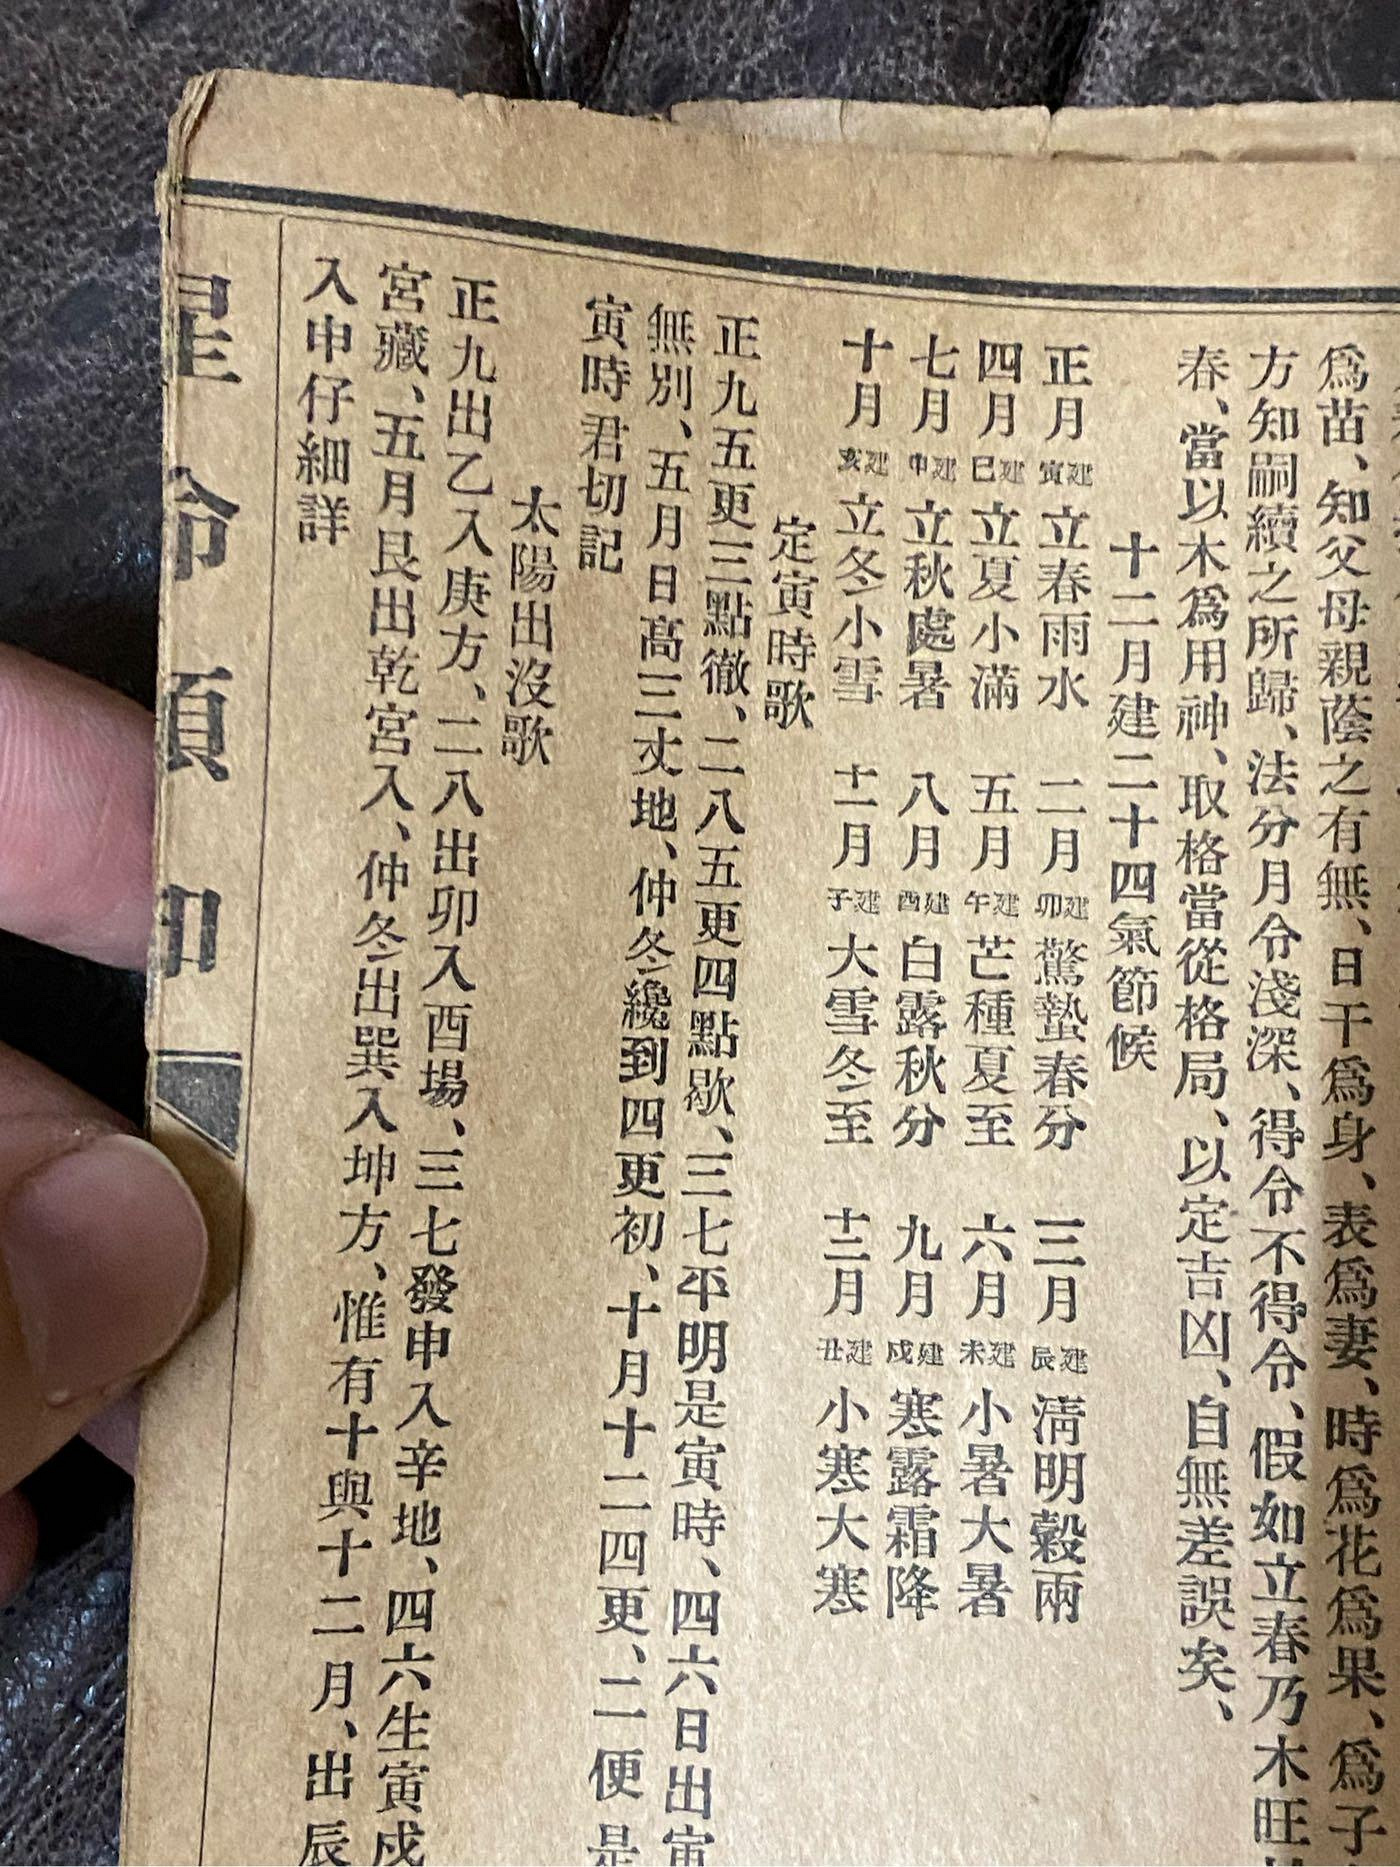 爲苗、知父母親蔭之有無、日干爲身、表爲妻、時爲花爲果、爲子
方知嗣續之所歸、法分月令淺深、得令不得令、假如立春乃木旺
春、當以木爲用神、取格當從格局、以定吉凶、自無差誤矣、
十二月建二十四氣節候
正月建寅立春雨水 二月建卯驚蟄春分 三月建辰淸明穀兩
四月建巳立夏小滿 五月建午芒種夏至 六月建未小暑大暑
七月建申立秋處暑 八月建酉白露秋分 九月建戍寒露霜降
十月建亥立冬小雪 十一月建子大雪冬至 十二月建丑小寒大寒
定寅時歌
正九五更三點徹、二八五更四點歇、三七平明是寅時、四六日出寅
無別、五月日高三丈地、仲冬纔到四更初、十月十二四更、二便是
寅時君切記
太陽出沒歌
正九出乙入庚方、二八出卯入酉場、三七發申入辛地、四六生寅戍
宮藏、五月艮出乾宮入、仲冬出巽入坤方、惟有十與十二月、出辰
入申仔細詳
星命須知